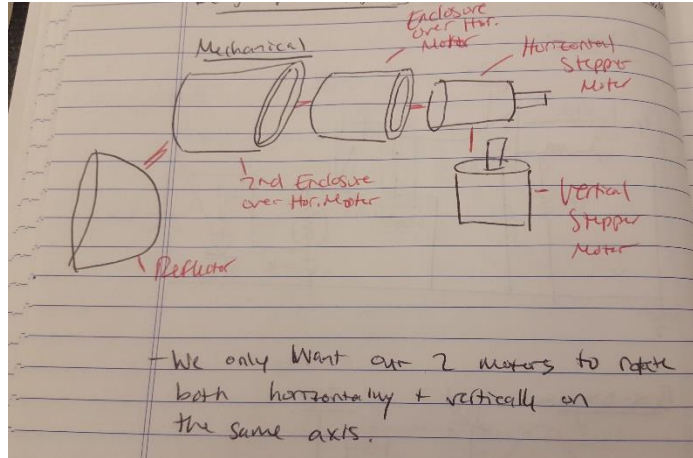 Mechanical
Enclosure
over Hor.
Motor
Horizontal
Stepper
Motor
2nd Enclosure
over Hor. Motor
Vertical
Stepper
Motor
Reflector
- We only want our 2 motors to rotate
both horizontaly + vertically on
the same axis.